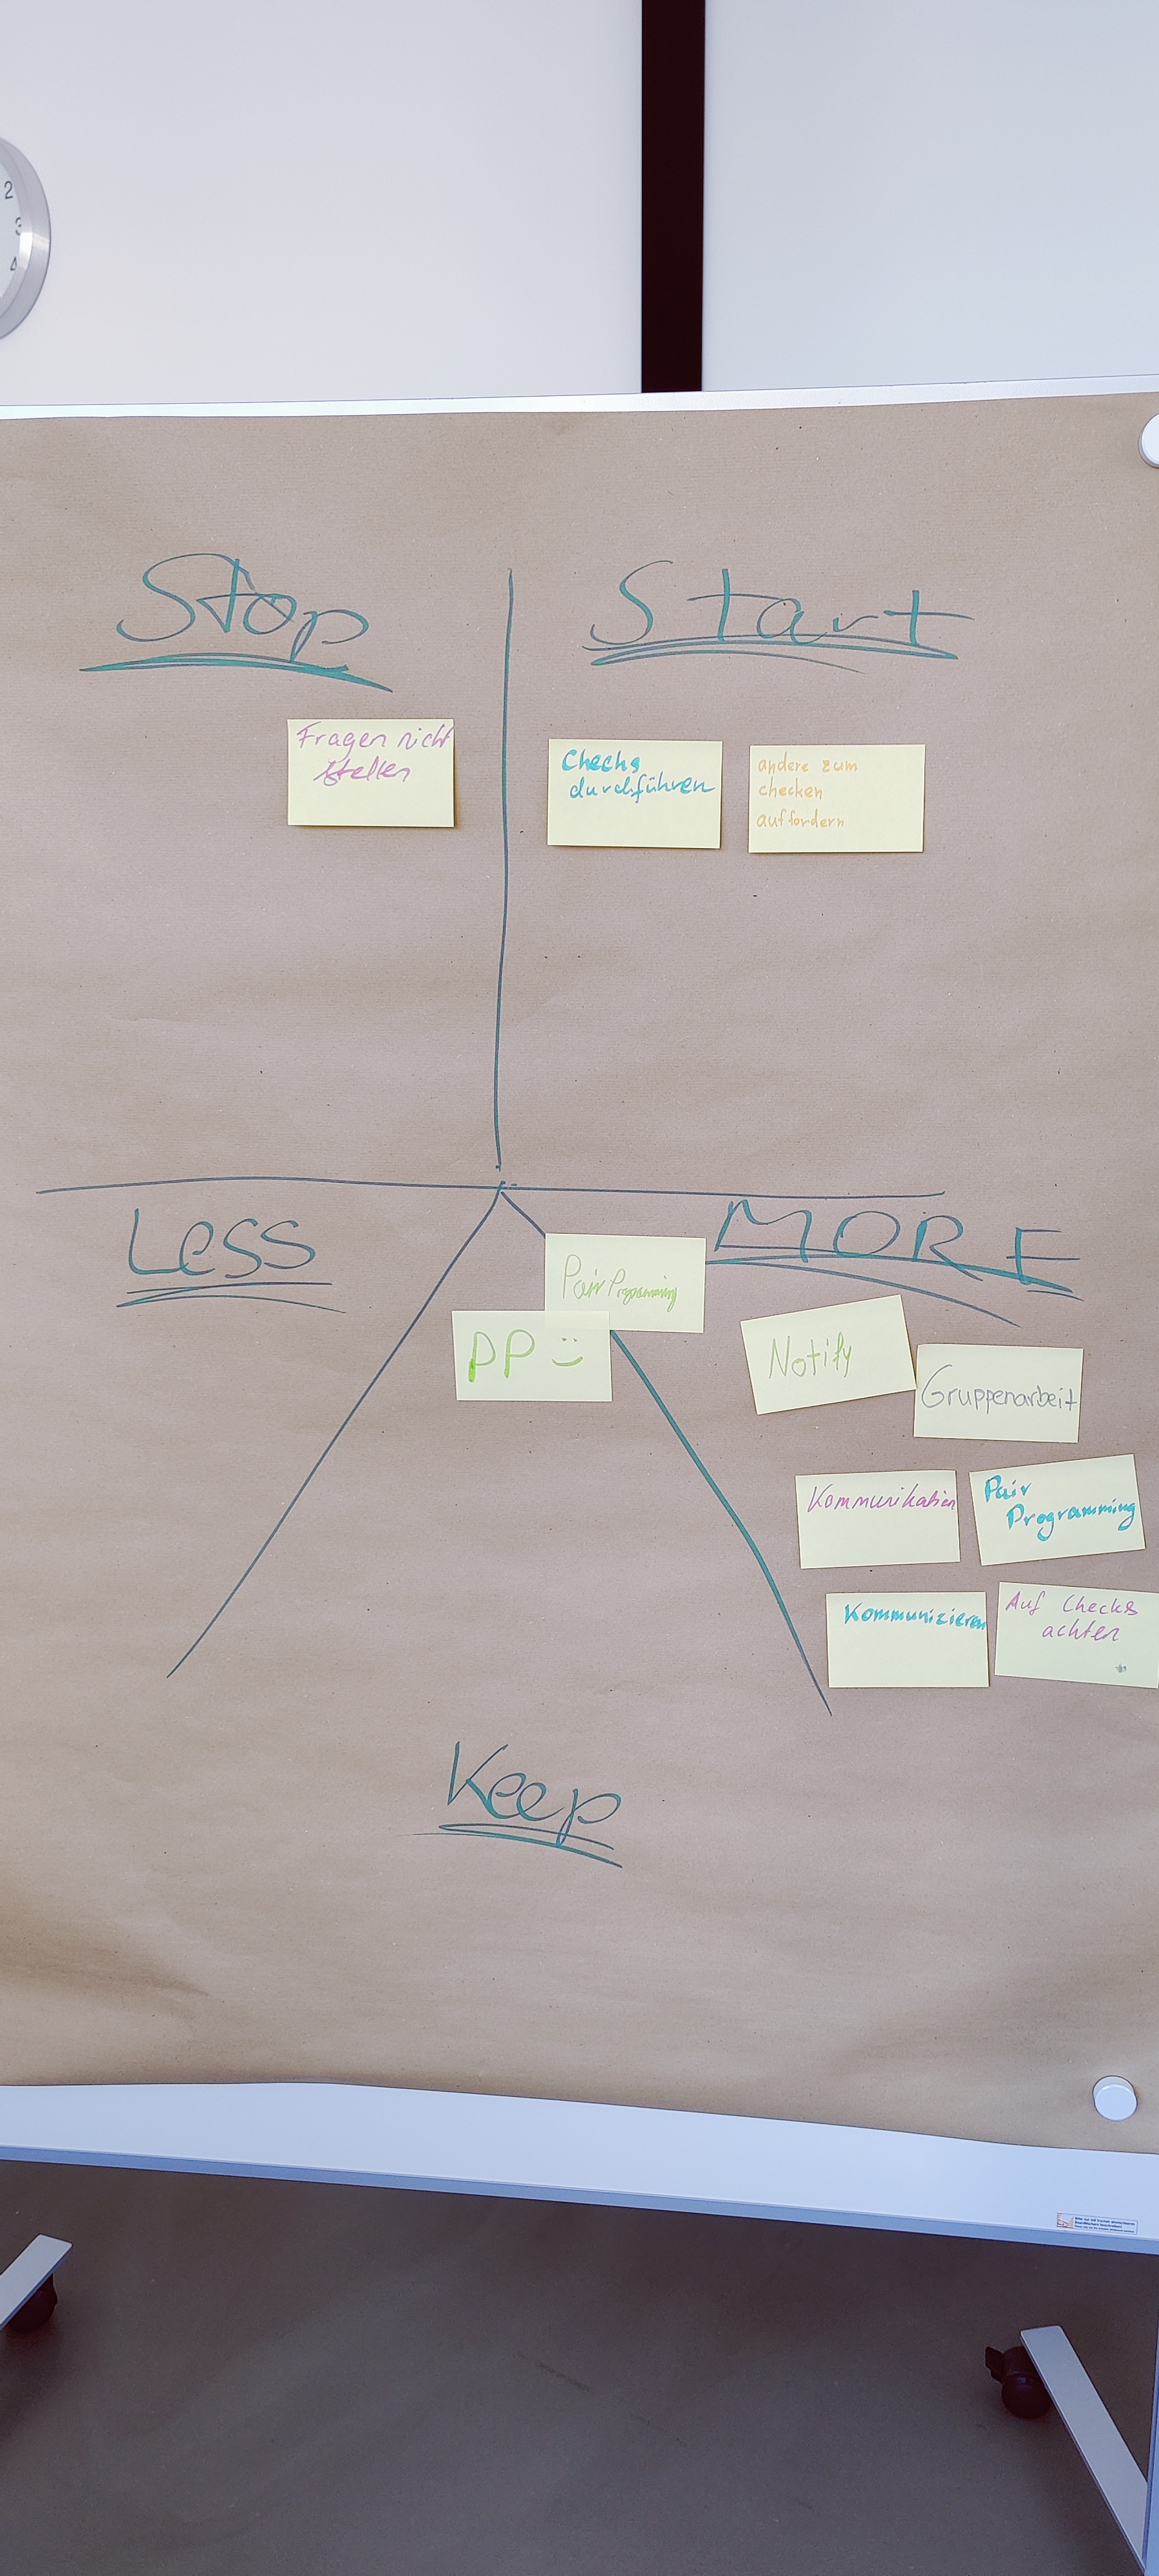 2
3
4
Stop
Start
Fragen nicht
stellen
Checks
durchführen
andere zum
checken
auffordern
Less
MORE
Pair Programming
PP :)
Notify
Gruppenarbeit
Kommunikation
Pair
Programming
Kommunizieren
Auf Checks
achten
Keep